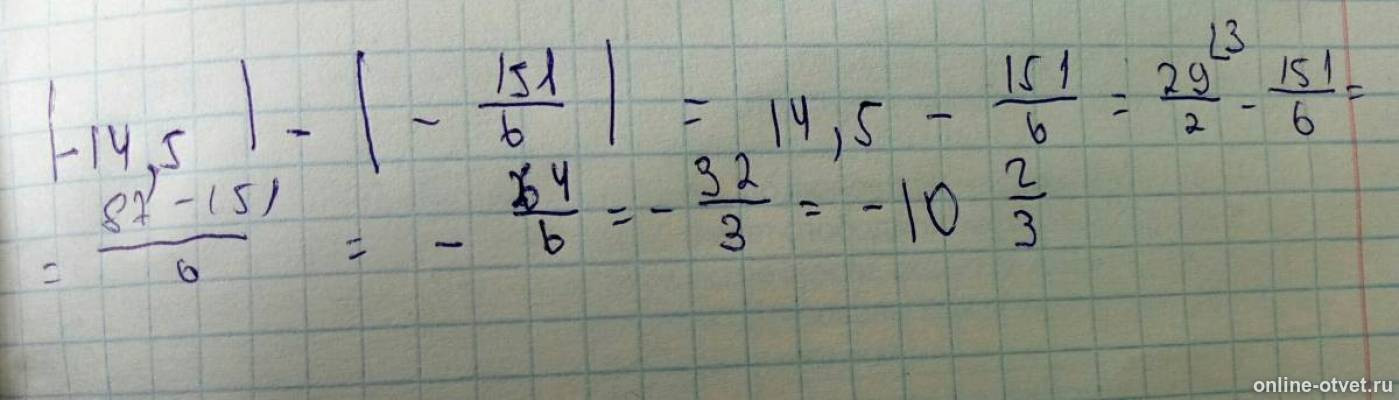 |-14,5| - |-151/6| = 14,5 - 151/6 = 29/2 ⌊3 - 151/6 =
= 87-151/6 = - 64/6 = - 32/3 = -10 2/3
online-otvet.ru